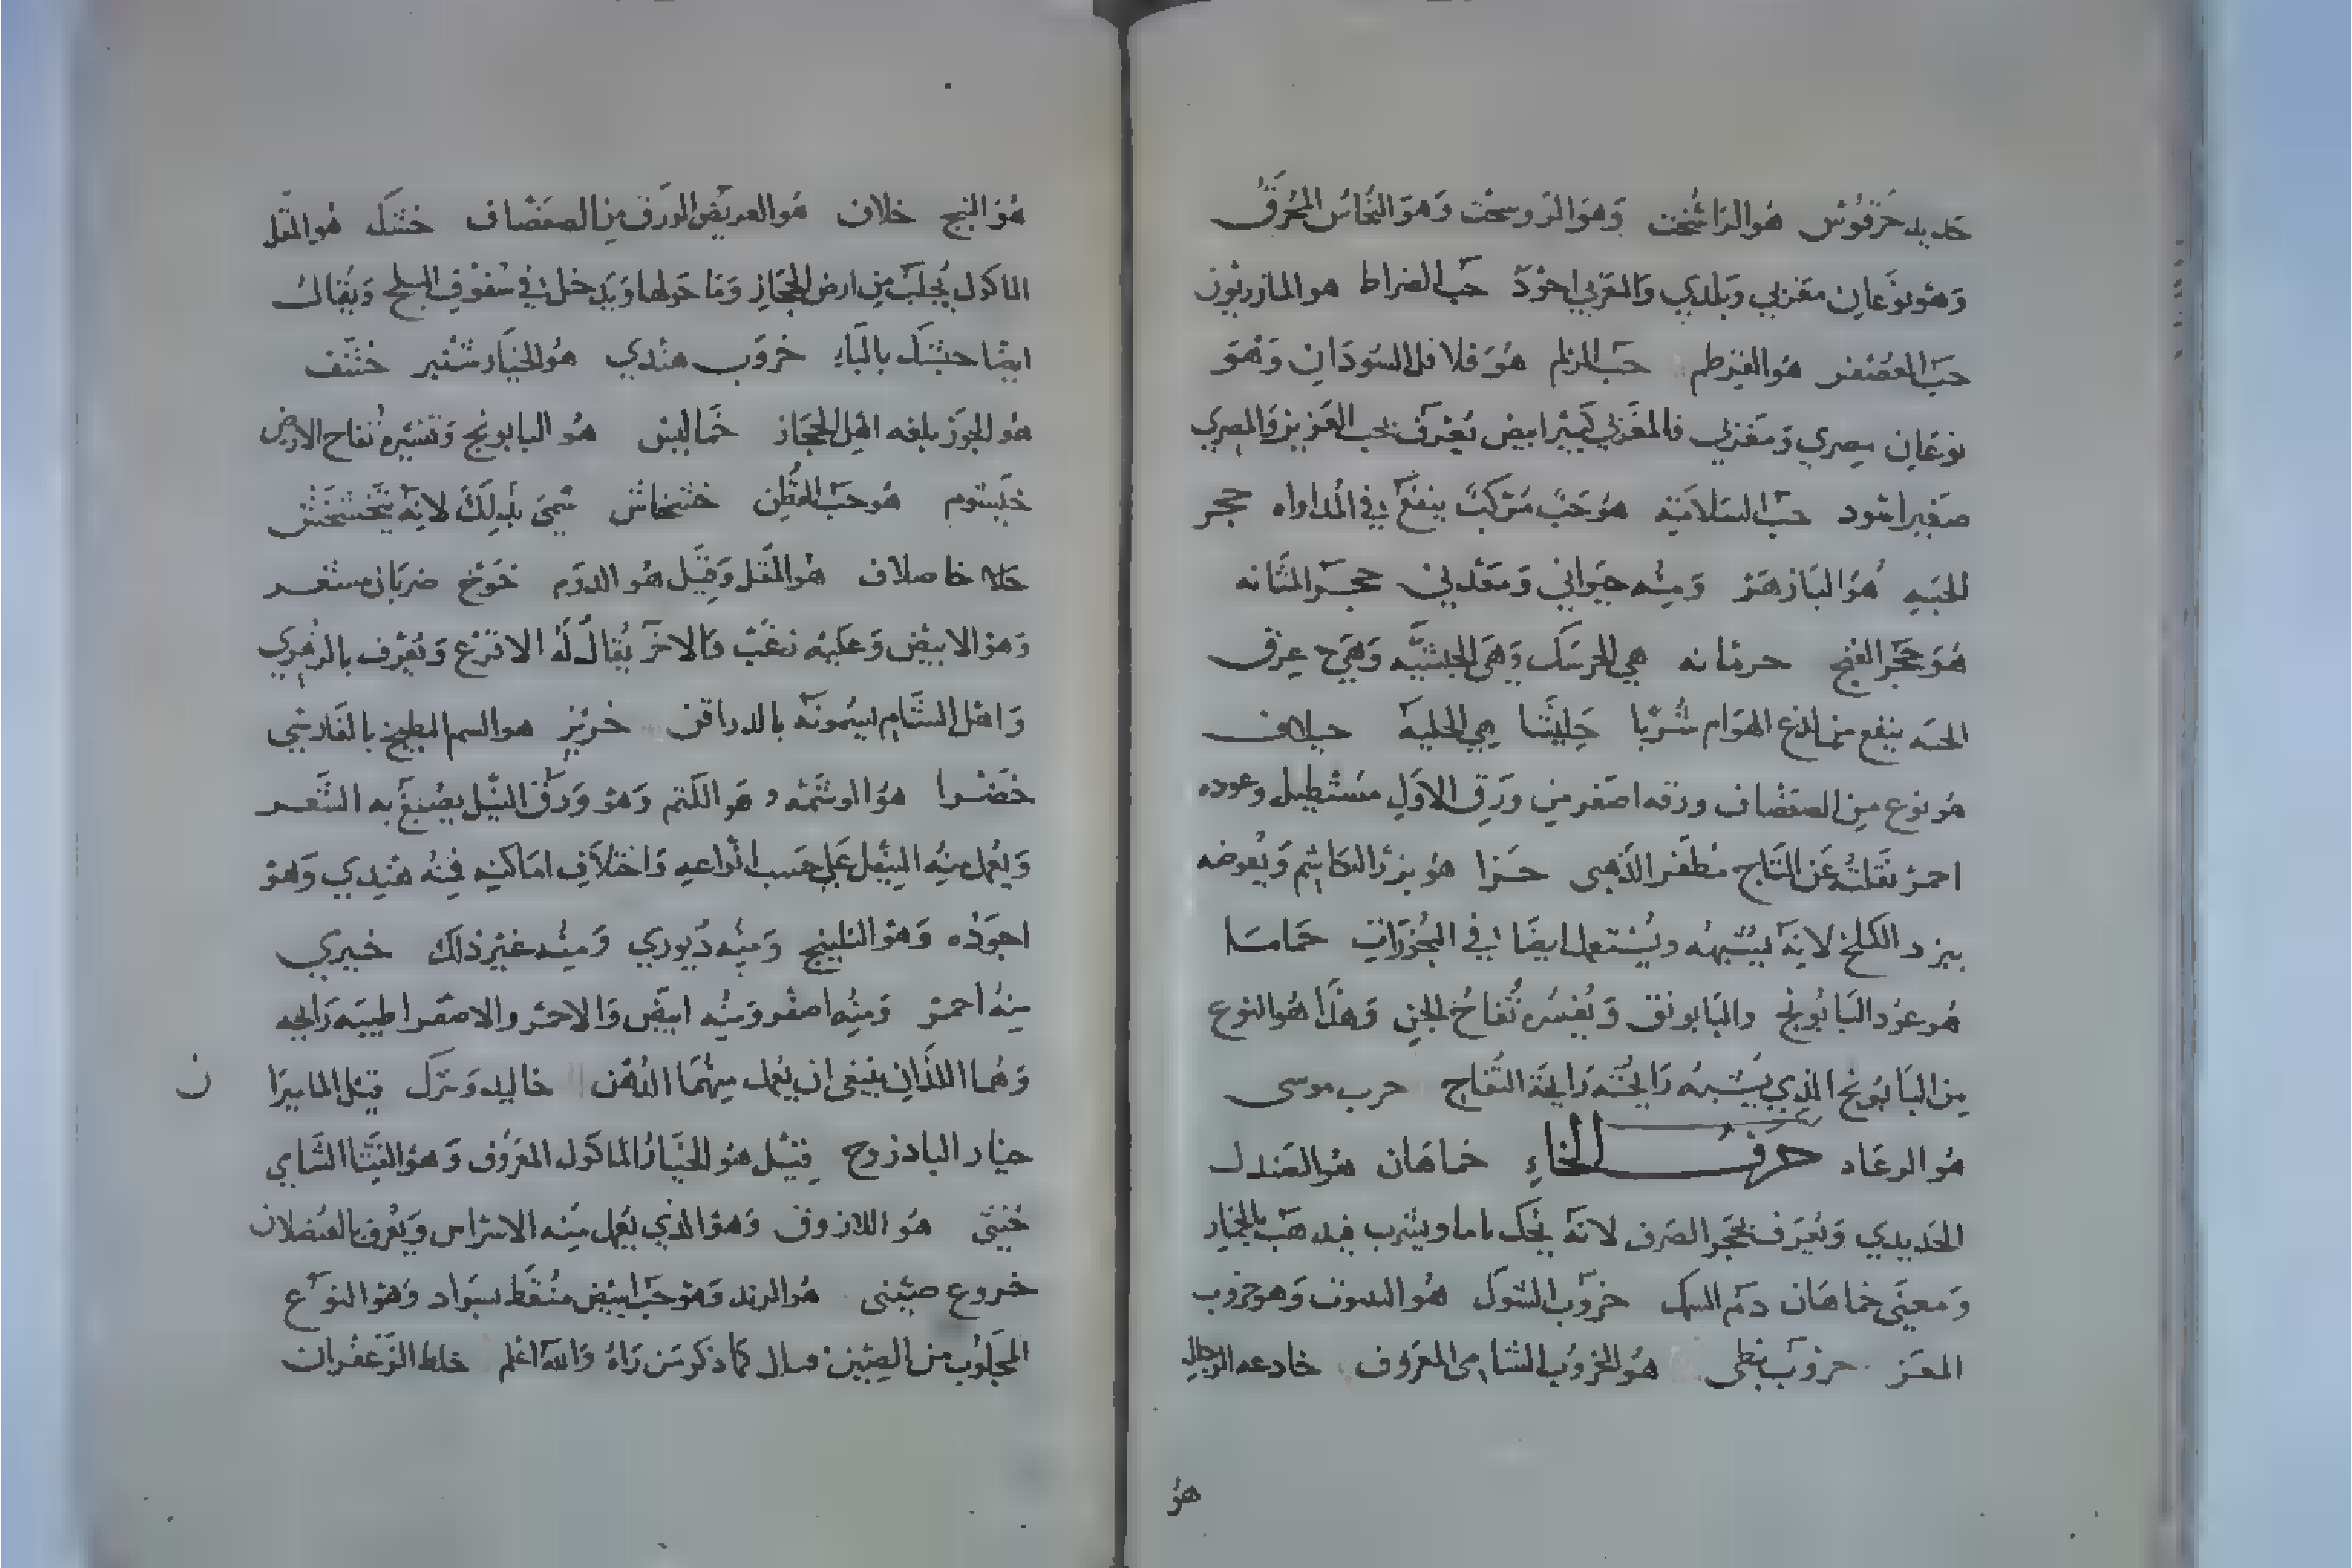 حديد خرقوش هو الراشخت وهو الروسخت وهو النحاس المحرق
وهو نوعان مغربي وبلدي والمغربي اجود حب الضراط هو المازريون
حب العصفر هو القرطم حب الزلم هو فلافل السودان وهو
نوعان مصري ومغربي فالمغربي كبير ابيض يعرف بحب العزيز والمصري
صغير اسود حب السلامية هو حب مركب ينفع في المداواه حجر
الحيه هو البازهر ومنه حيواني ومعدني حجر المثانه
هو حجر القبح حرمانه هي الحرسك وهي الحبشيه وهي عرق
الحيه ينفع من لدغ الهوام شربا حليثا هي الحلبه حيلاف
هو نوع من الصفصاف ورقه اصغر من ورق الاول مستطيل وعوده
احمر نقلته عن التاج مظفر الذهبي حزا هو بزر الكاشم ويعوضه
ببزر الكلخ لانه يشبهه ويستعمل ايضا في البخورات حماما
هو عود البابونج والبابونق ويفسره تفاح الجن وهذا هو النوع
من البابونج الذي يشبه رايحته رايحة التفاح حرب موسى
هو الرعاد حرف الخاء خماهان هو الصندل
الحديدي ويعرف بحجر الصرف لانه يحك بما ويشرب فيذهب بالخمار
ومعنى خماهان دم السمك خروب الشوك هو الينبوت وهو خروب
المعز خروب نبطي هو الخروب الشامي المعروف خادعه الرجال
هو
هو البنج خلاف هو العريض الورق من الصفصاف ختنك هو المقل
الماكول يجلب من ارض الحجاز وما حولها ويدخل في سفوف البلح ويقال
ايضا حبتنك بالباء خروب هندي هو الخيار شنبر خنتف
هو الجوز بلغه اهل الحجاز خماليس هو البابونج وتفسيره تفاح الارض
خيسوم هو حب القطن خشخاش سمي بذلك لانه يتخشخش
خاصلاف هو المقل وقيل هو الدوم خوخ ضربان مشعر
وهو الابيض وعليه زغب والاخر يقال له الاقرع ويعرف بالزهري
واهل الشام يسمونه بالدراقن خربز هو السم البطيخ بالفارسي
خضرا هو الوشمه وهو الكتم وهو ورق النيل يصبغ به الشعر
ويعمل منه النيل على حسب انواعه واختلاف اماكنه فمنه هندي وهو
اجوده وهو النيلنج ومنه ديوري ومنه غير ذلك خيري
منه احمر ومنه اصفر ومنه ابيض والاحمر والاصفر اطيبه رايحه
وهما اللذان ينبغي ان يعمل منهما الدهن خاليدوترك قيل الماميرا
ن
خيار الباذروح قيل هو الخيار الماكول المعروف وهو القثا الشامي
خنثى هو اللازوق وهو الذي يعمل منه الاشراس ويعرف بالعنصلان
خروع صيني هو الرند وهو حب ابيض منقط بسواد وهو النوع
المجلوب من الصين كما ذكر من راه والله اعلم خلط الزعفران